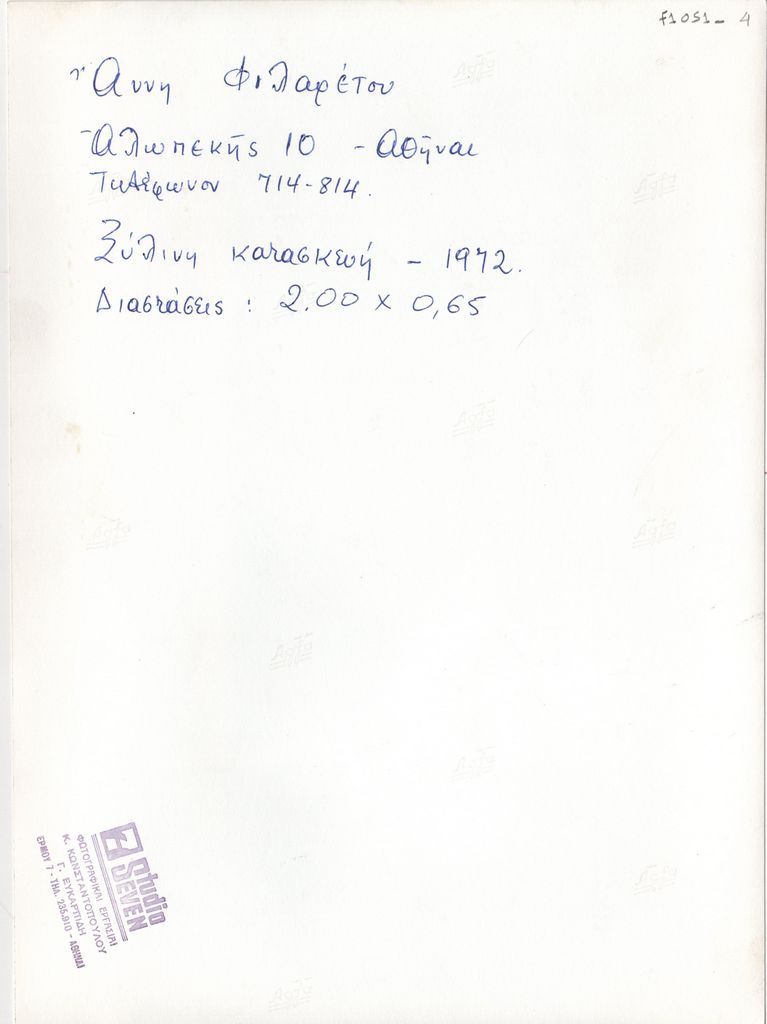 F1051_ 4
Ἄννη Φιλαρέτου
Ἀλωπεκῆς 10 - Ἀθῆναι
Τηλέφωνον 714-814.
Ξύλινη κατασκευή - 1972.
Διαστάσεις : 2.00 x 0,65
Studio
SEVEN
ΦΩΤΟΓΡΑΦΙΚΑΙ ΕΡΓΑΣΙΑΙ
Κ. ΚΩΝΣΤΑΝΤΟΠΟΥΛΟΥ
Γ. ΕΥΚΑΡΠΙΔΗ
ΕΡΜΟΥ 7 - ΤΗΛ. 235.910 - ΑΘΗΝΑΙ
Agfa
Agfa
Agfa
Agfa
Agfa
Agfa
Agfa
Agfa
Agfa